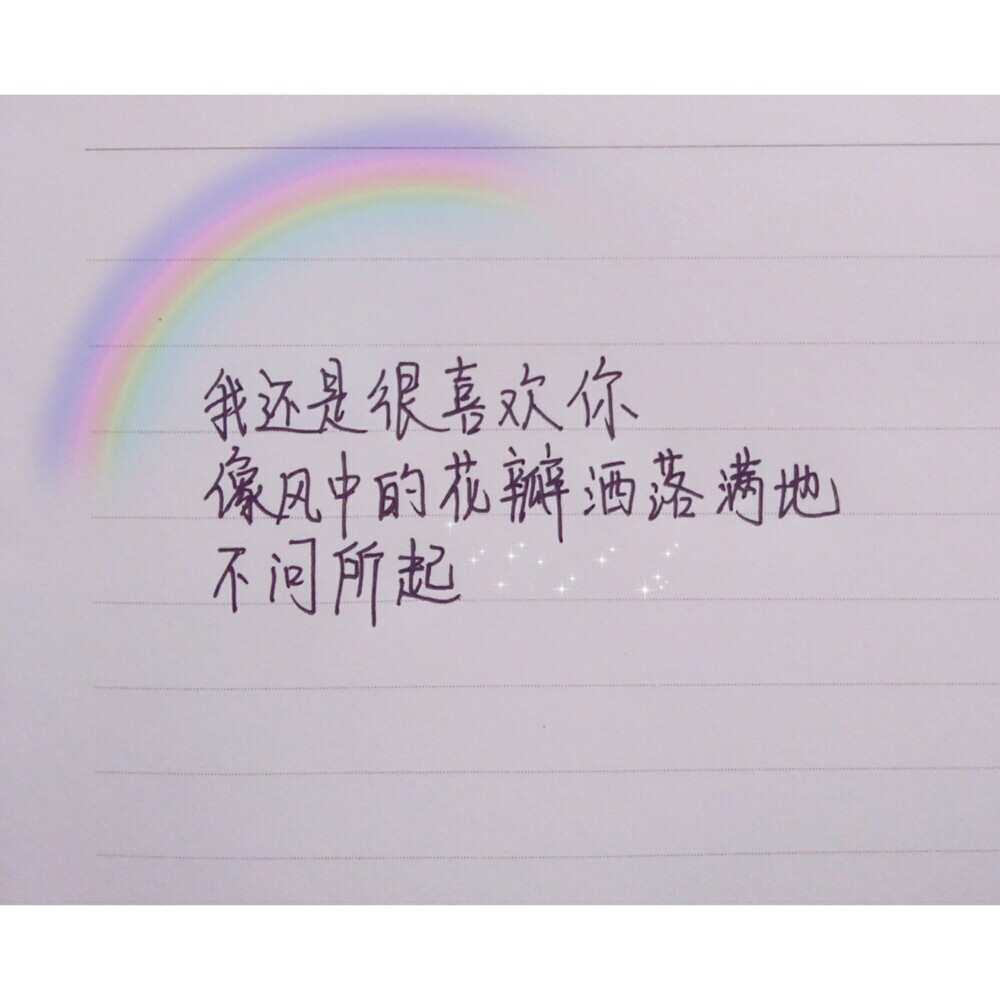 我还是很喜欢你
像风中的花瓣洒落满地
不问所起